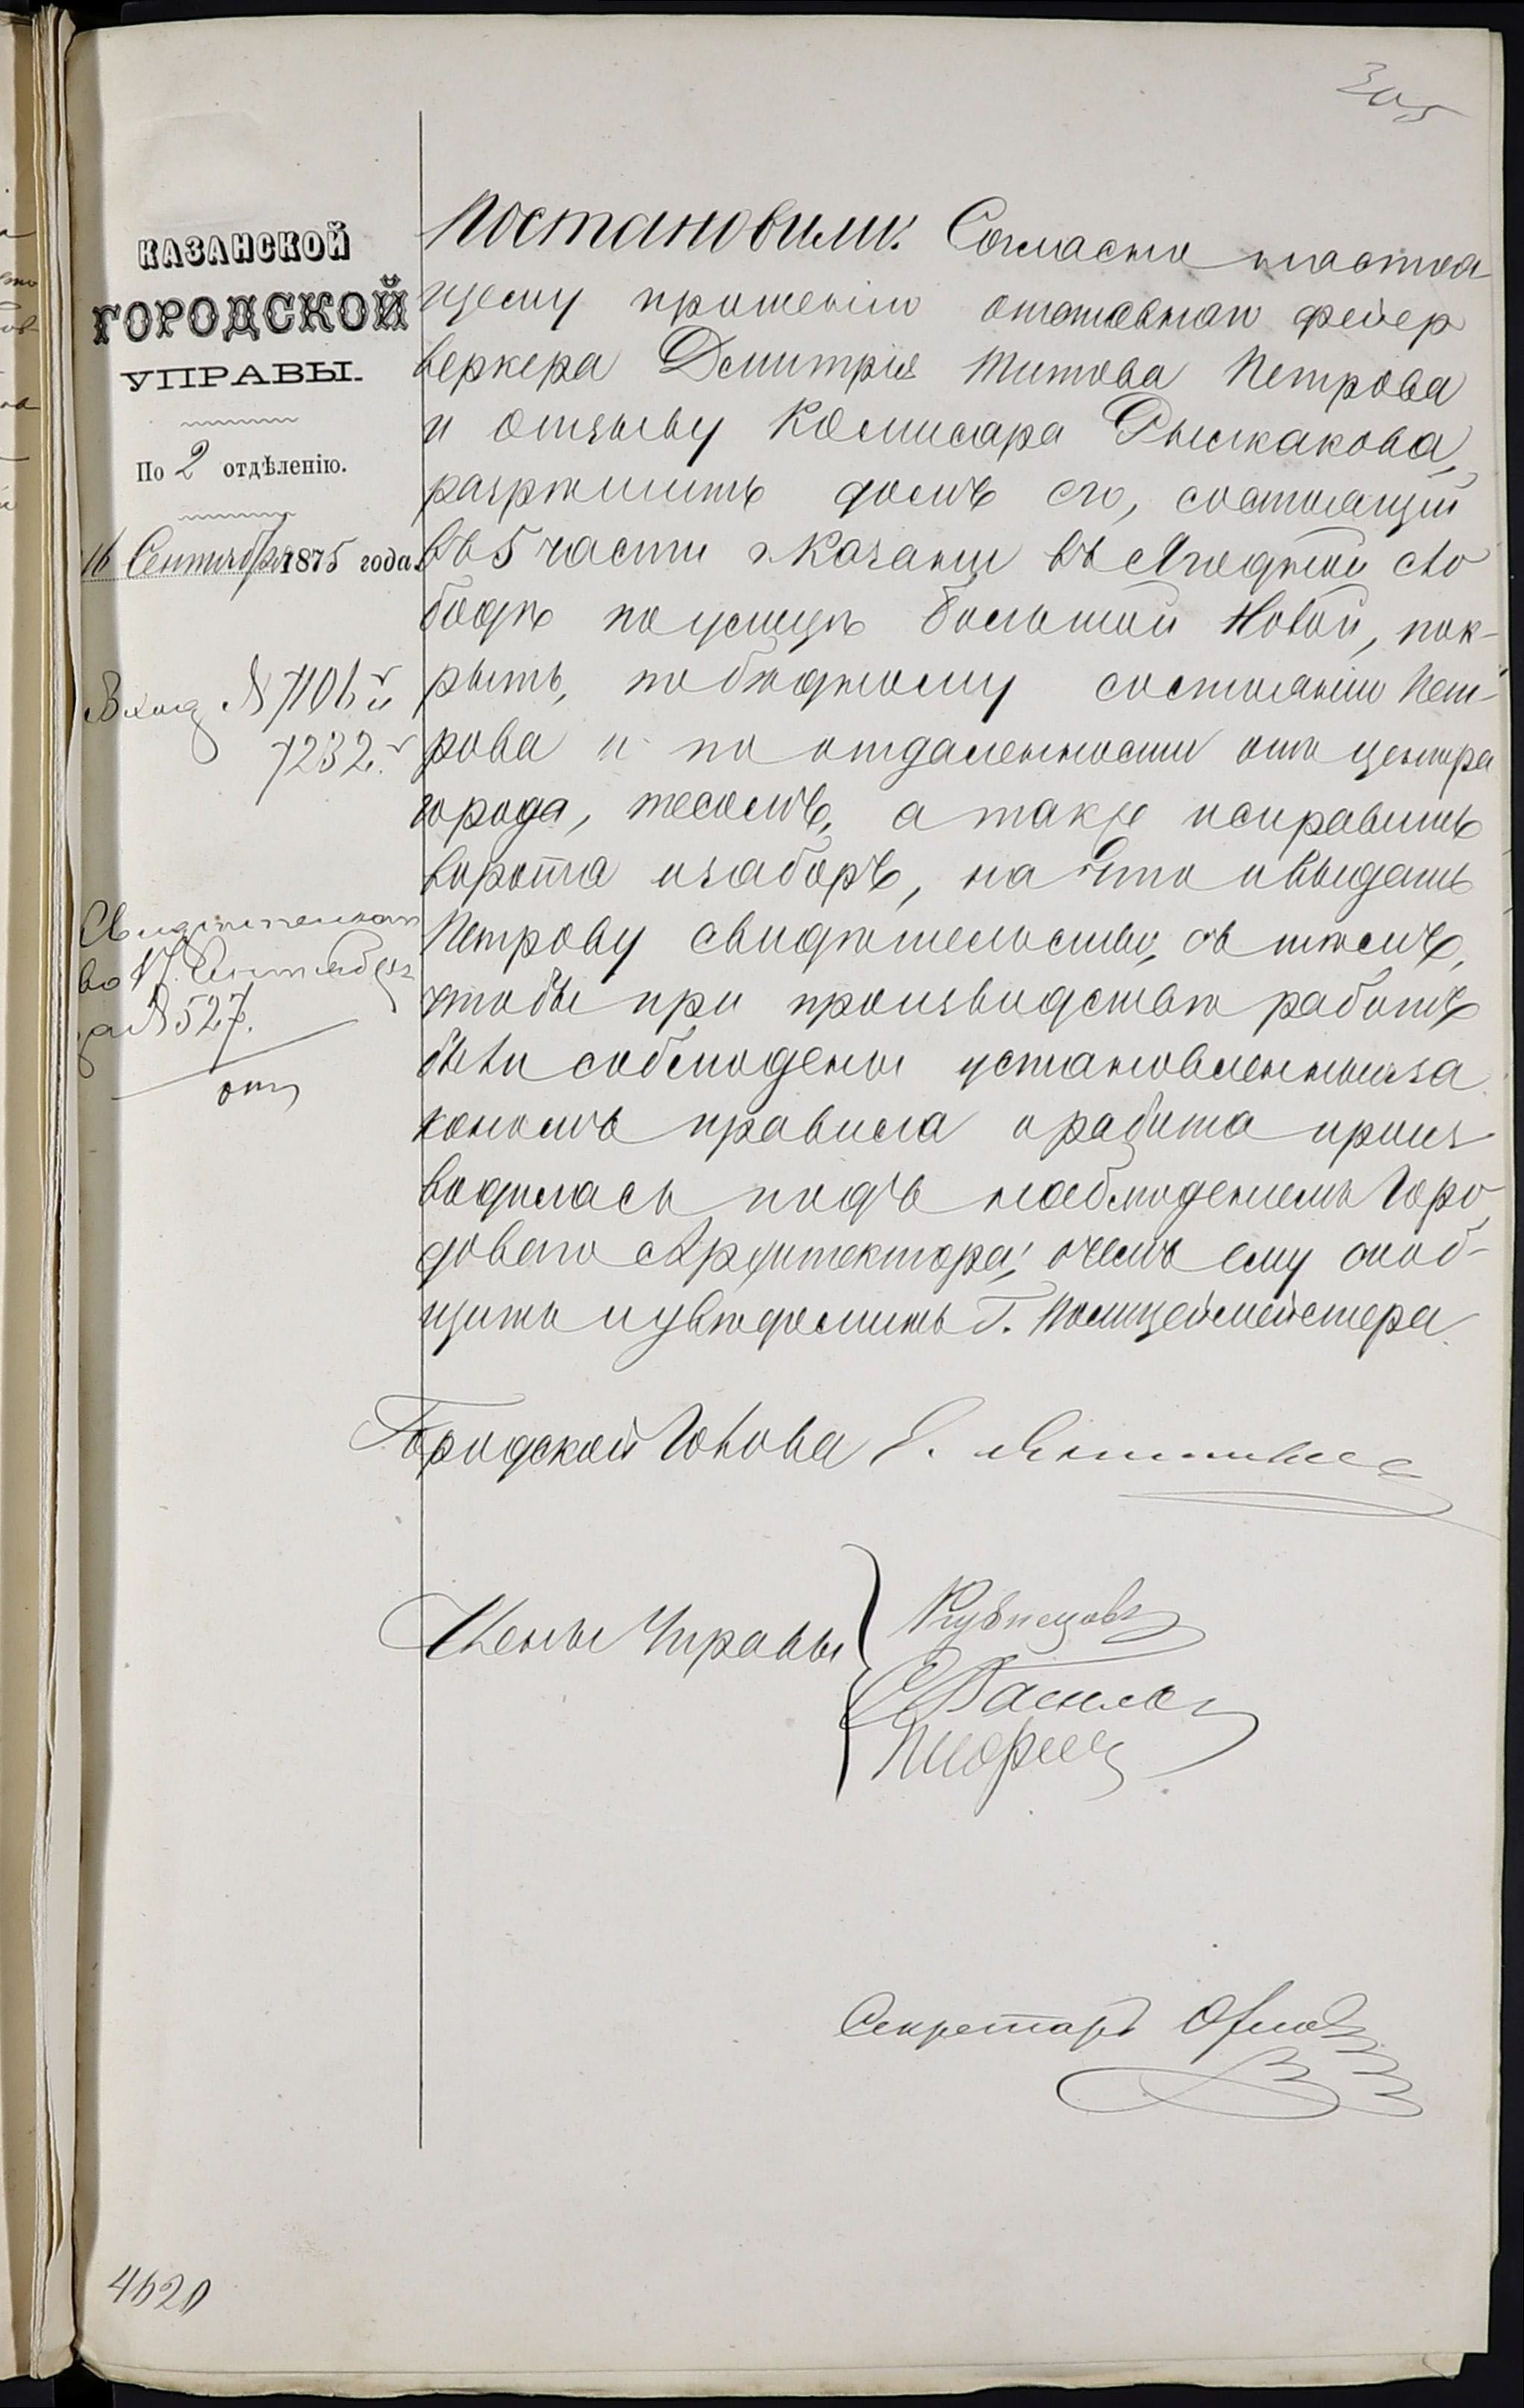 305
КАЗАНСКОЙ
ГОРОДСКОЙ
УПРАВЫ.
По 2 отдѣленію.
16 Сентября 1875 года.
Вход № 7106 и
7232.
Свидѣтельст
во 17 Сентября
за № 527.
Постановили: Согласно настоя
щему прошенію отставнаго фейер
веркера Дмитрія Титова Петрова
и отзыву Комисара Рыжакова,
разрѣшить домъ его, состоящій
въ 5 части г. Казани въ Ягодной сло
бодѣ по улицѣ большой Новой, пок-
рыть, по бѣдному состоянію Пет-
рова и по отдаленности отъ центра
города, тесомъ, а также исправить
ворота и заборъ, на что и выдать
Петрову свидѣтельство, съ тѣмъ,
чтобы при производствѣ работъ
были соблюдены установленныя за
кономъ правила и работа произ
водилась подъ наблюденіемъ Горо
доваго Архитектора; о чемъ ему сооб-
щить и увѣдомить Г. Полицеймейстера.
Городской Голова Е.
Члены Управы
Кузнецовъ
Секретарь Орловъ
4620